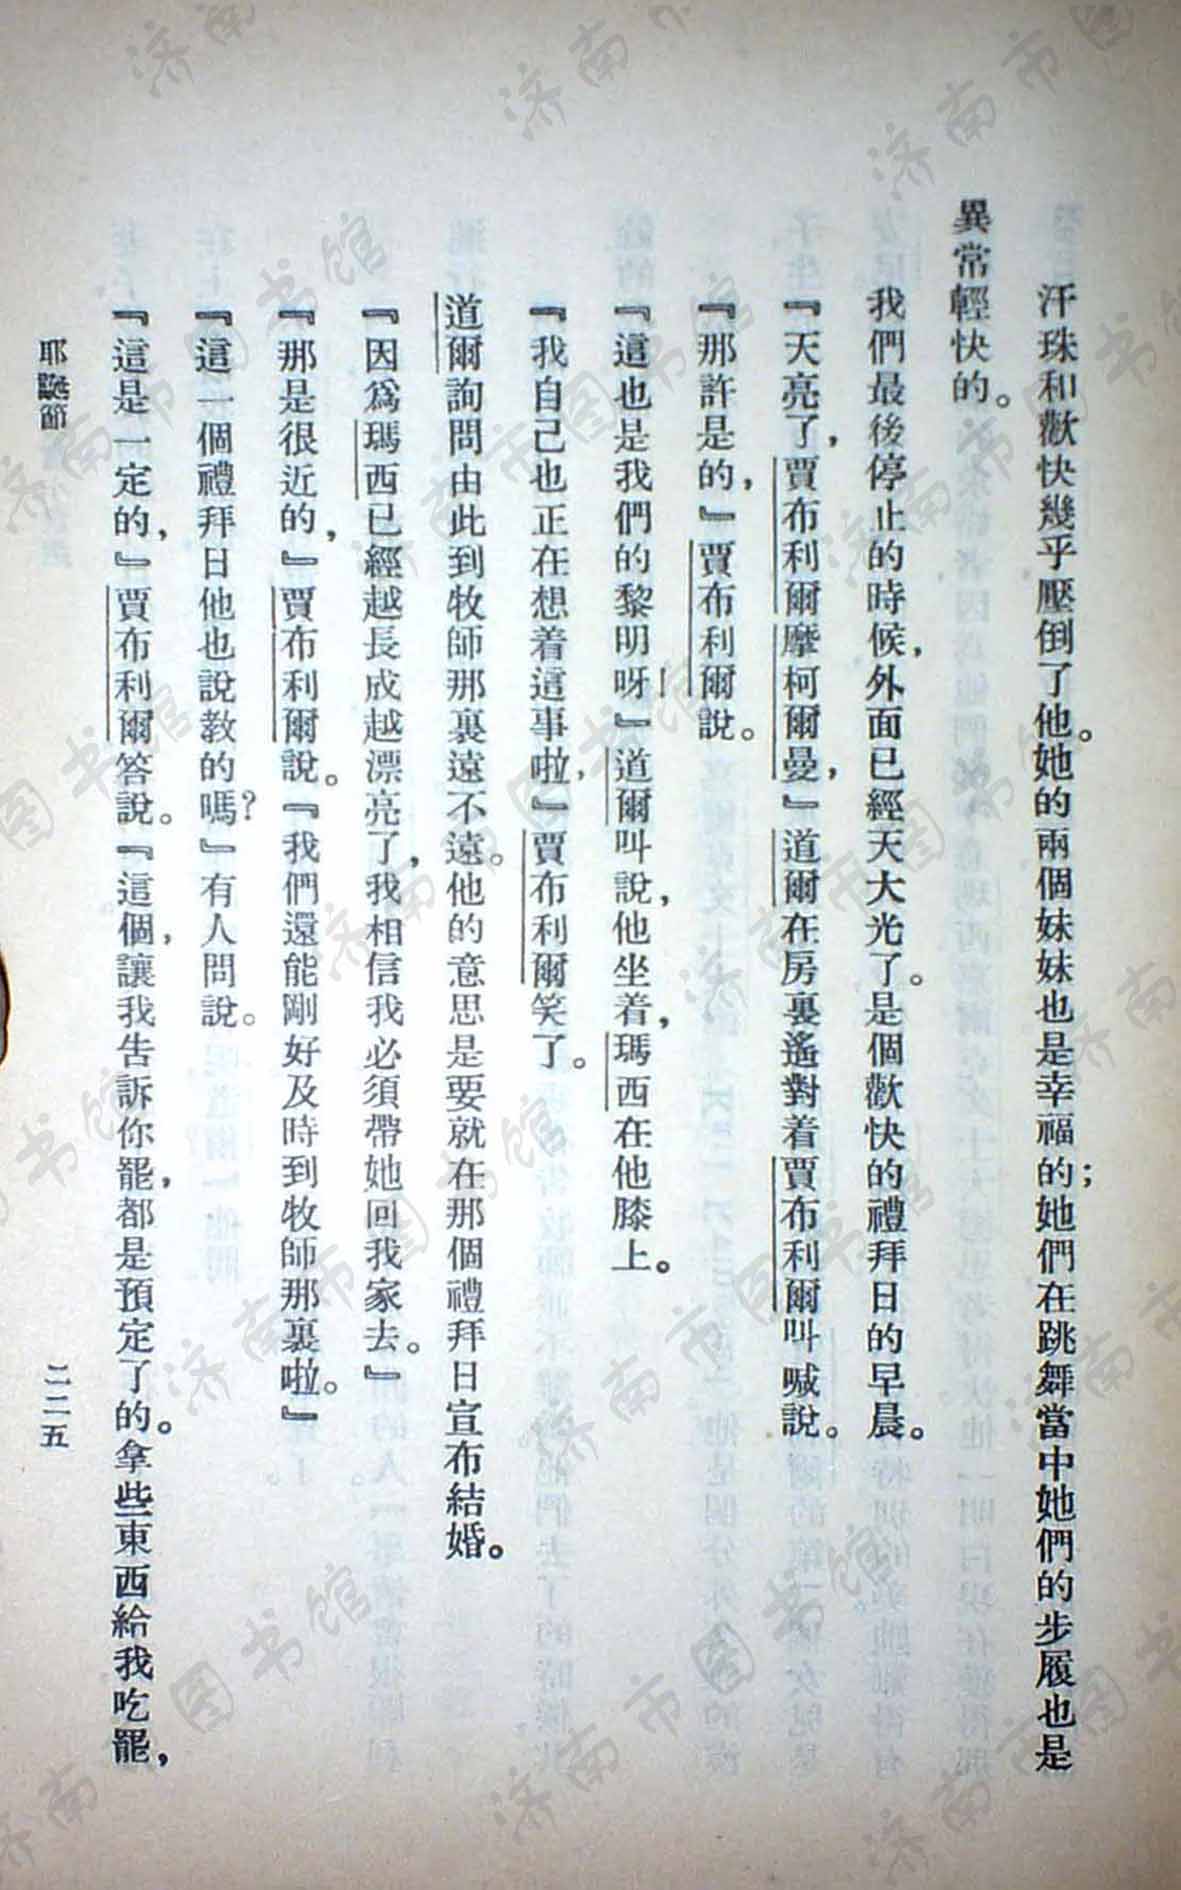 汗珠和歡快幾乎壓倒了他。她的兩個妹妹也是幸福的；她們在跳舞當中她們的步履也是
異常輕快的。
我們最後停止的時候，外面已經天大光了。是個歡快的禮拜日的早晨。
『天亮了，賈布利爾摩柯爾曼，』道爾在房裏遙對着賈布利爾叫喊說。
『那許是的，』賈布利爾說。
『這也是我們的黎明呀！』道爾叫說，他坐着，瑪西在他膝上。
『我自己也正在想着這事啦，』賈布利爾笑了。
道爾詢問由此到牧師那裏遠不遠。他的意思是要就在那個禮拜日宣布結婚。
『因爲瑪西已經越長成越漂亮了，我相信我必須帶她回我家去。』
『那是很近的，』賈布利爾說。『我們還能剛好及時到牧師那裏啦。』
『這一個禮拜日他也說教的嗎？』有人問說。
『這是一定的，』賈布利爾答說。『這個，讓我告訴你罷，都是預定了的。拿些東西給我吃罷，
耶誕節
二二五
济南市图书馆